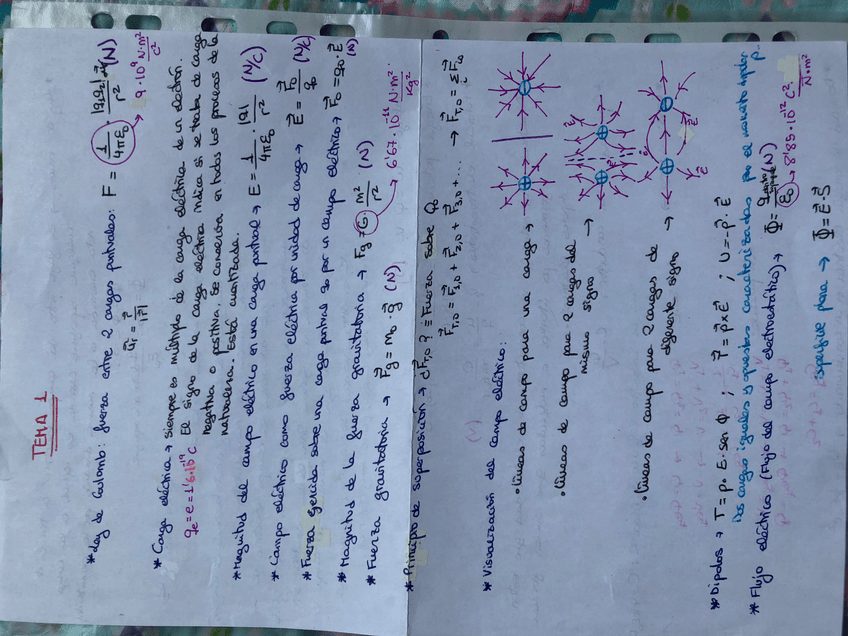 TEMA 1
* Ley de Coulomb: fuerza entre 2 cargas puntuales: F = 1/4πε₀ |q₁q₂|/r² (N)
u⃗r = r⃗/|r⃗|
9·10⁹ N·m²/C²
* Carga eléctrica → siempre es múltiplo de la carga eléctrica de un electrón.
qe = e = 1'6·10⁻¹⁹ C El signo de la carga eléctrica indica si se trata de carga
negativa o positiva. Se conserva en todos los procesos de la
naturaleza. Está cuantizada.
* Magnitud del campo eléctrico en una carga puntual → E = 1/4πε₀ · |q|/r² (N/C)
* Campo eléctrico como fuerza eléctrica por unidad de carga → E⃗ = F⃗₀/q₀ (N/C)
* Fuerza ejercida sobre una carga puntual q₀ por un campo eléctrico → F⃗₀ = q₀·E⃗ (N)
* Magnitud de la fuerza gravitatoria → Fg = G· m²/r² (N)
6'67·10⁻¹¹ N·m²/Kg²
* Fuerza gravitatoria → F⃗g = m₀·g⃗ (N)
* Principio de superposición → ¿F⃗T,0? ≡ Fuerza sobre q₀
F⃗T,0 = F⃗1,0 + F⃗2,0 + F⃗3,0 + ... → F⃗T,0 = Σ F⃗i,0
* Visualización del campo eléctrico:
• líneas de campo para una carga →
• líneas de campo para 2 cargas del
mismo signo →
• líneas de campo para 2 cargas de
diferente signo →
* Dipolos → T = p·E·sen Φ ; τ⃗ = p⃗×E⃗ ; U = -p⃗·E⃗
Dos cargas iguales y opuestas caracterizadas por el momento dipolar p.
* Flujo eléctrico (Flujo del campo electrostático) → Φ =
ε₀ → 8'85·10⁻¹² C²/N·m²
superficie plana → Φ = E⃗·S⃗